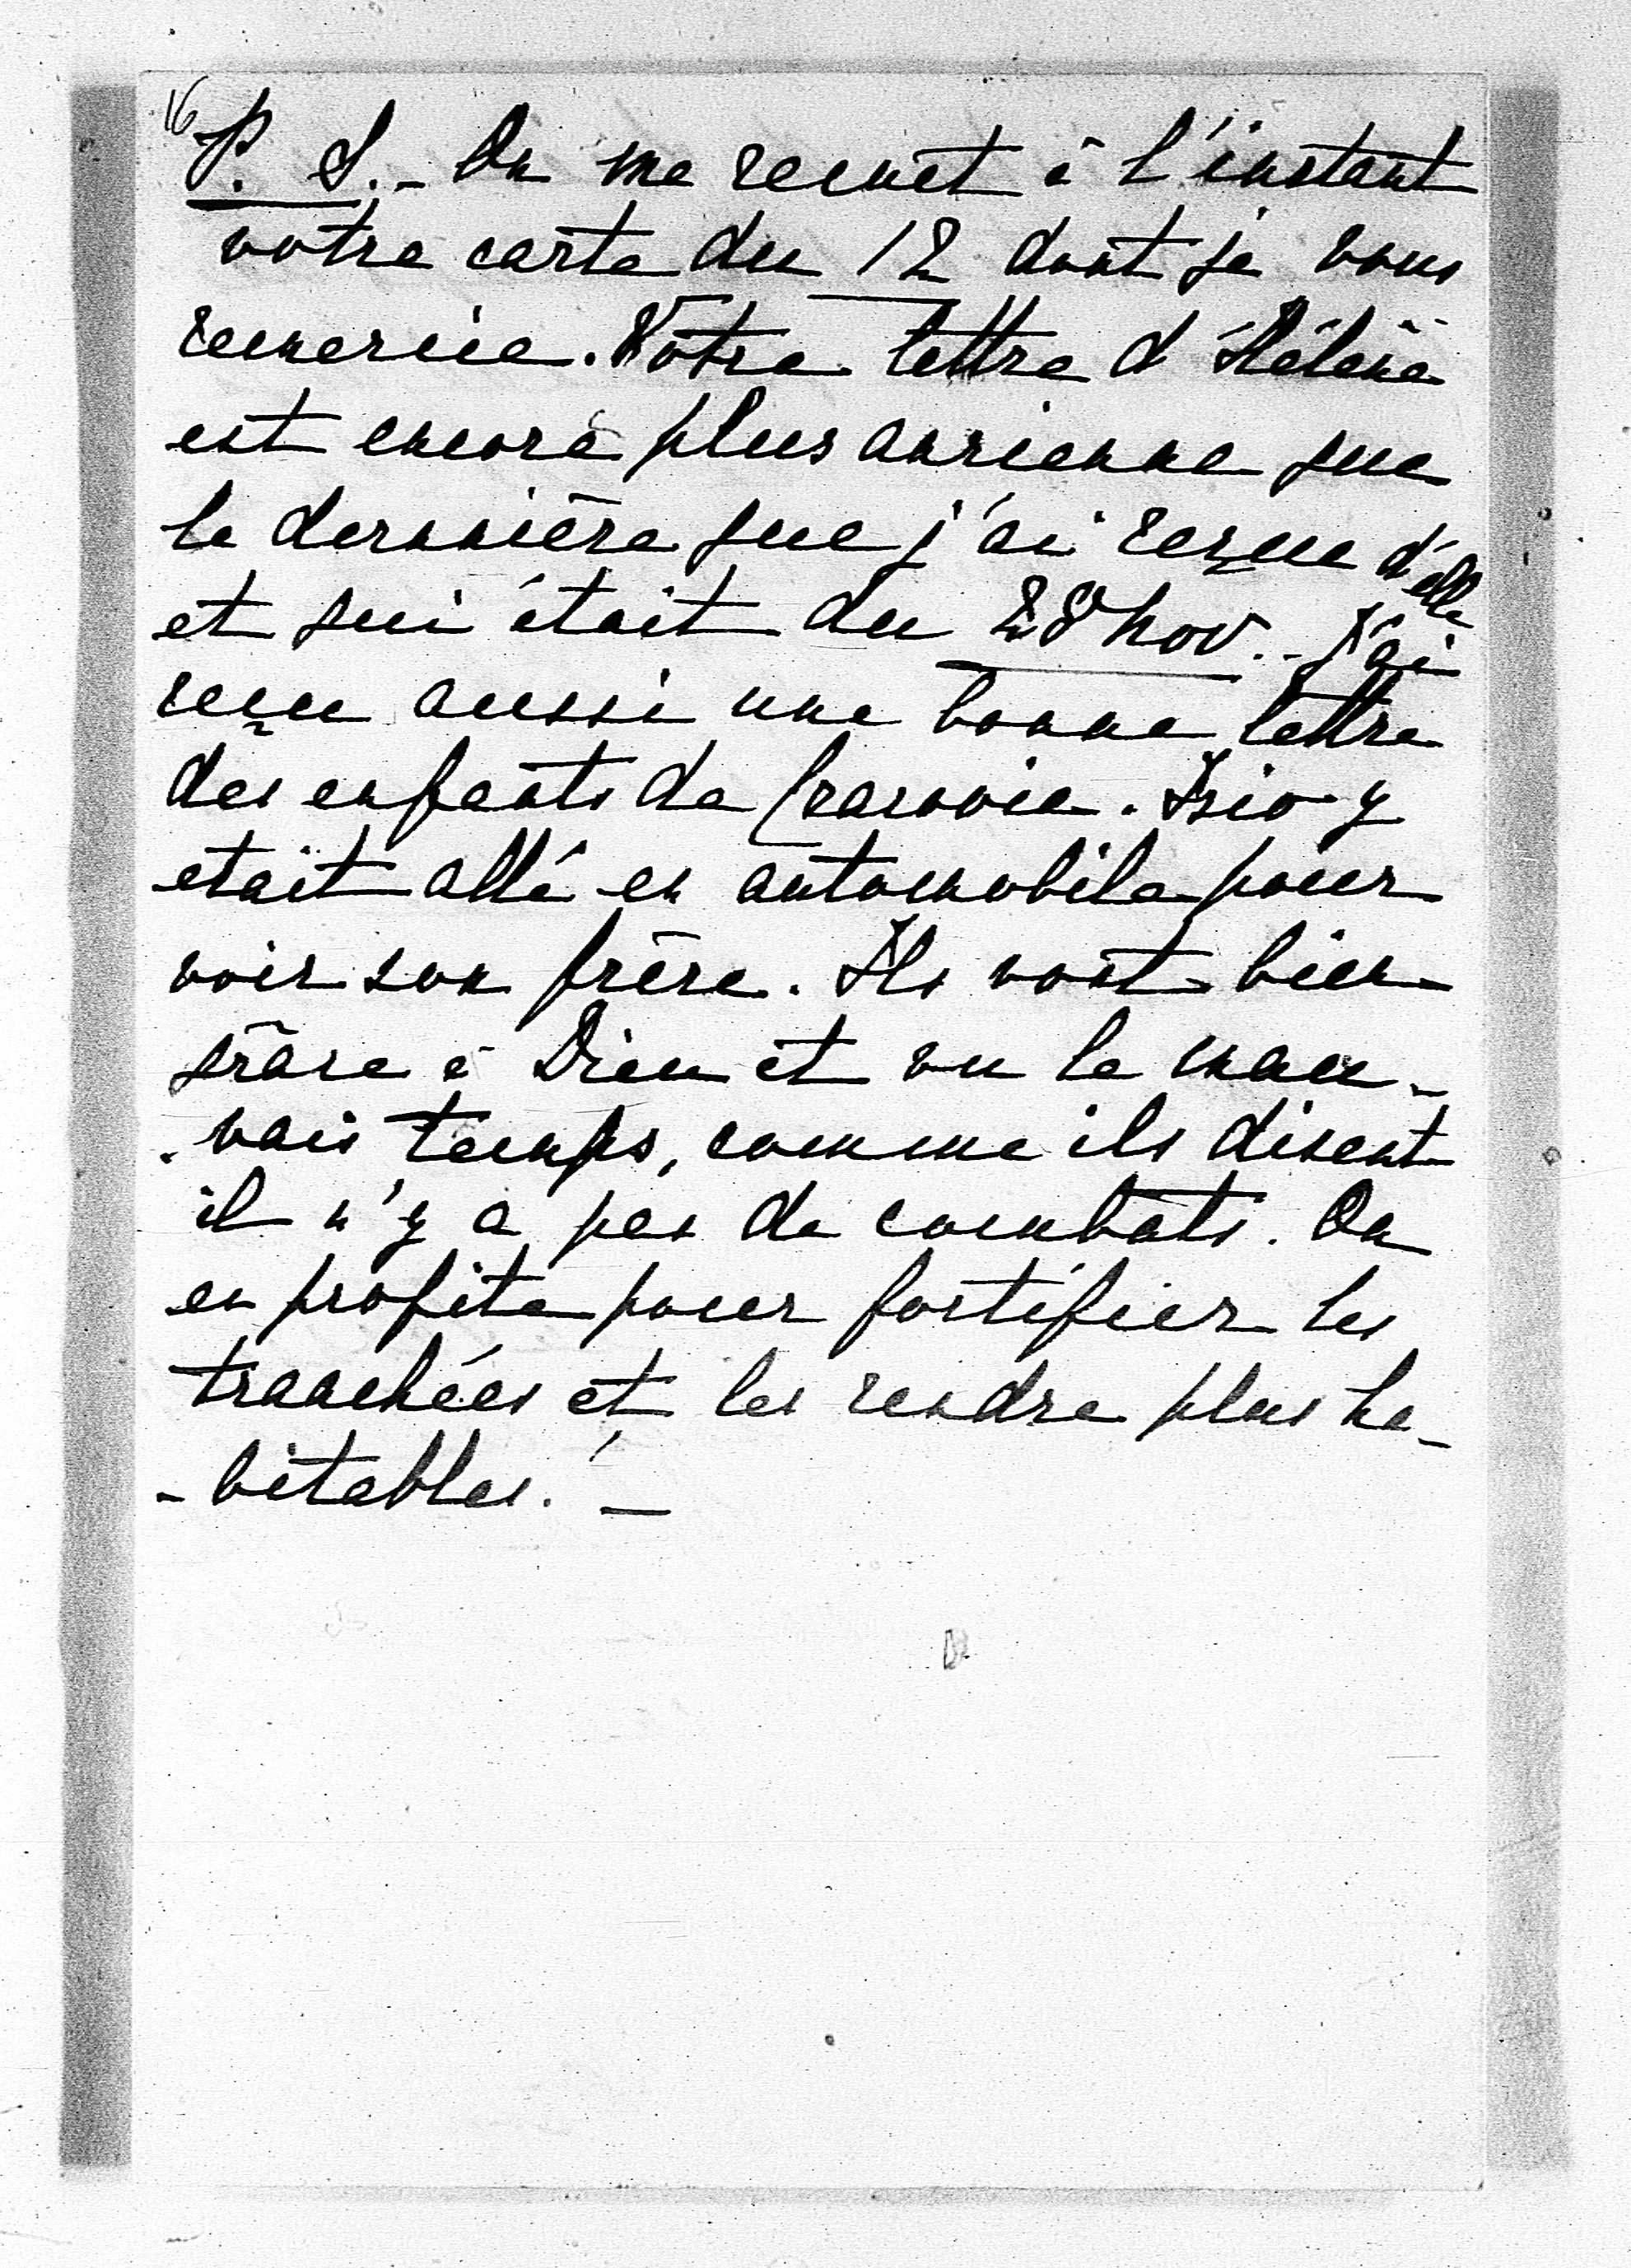 16
P. S. - On me remet à l'instant
votre carte du 12 dont je vous
remercie. Votre lettre d'Hélène
est encore plus ancienne que
la dernnière que j'ai reçue d'elle
et qui était du 28 nov. - J'ai
reçu aussi une bonne lettre
des enfants de Cracovie. Isio y
etait allé en automobile pour
voir son frère. Ils vont bien
grâce à Dieu et vu le mau-
-vais temps, comme ils disent
il n'y a pas de combats. On
en profite pour fortifier les
tranchées et les rendre plus ha-
-bitables! -